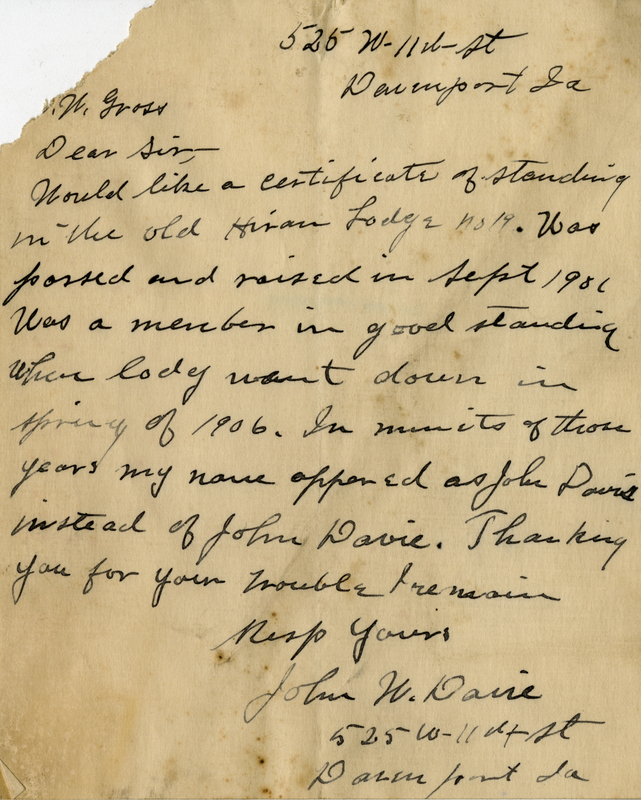 525 W-11th-St
Davenport Ia
. W. Gross
Dear Sir,-
Would like a certificate of standing
in the old Hiram Lodge No 19. Was
passed and raised in Sept 1901
Was a member in good standing
when lodg went down in
spring of 1906. In minits of those
years my name appered as John Davis
instead of John Davie. Thanking
you for your trouble I remain
Resp Yours
John W. Davie
525 W-11th St
Davenport Ia